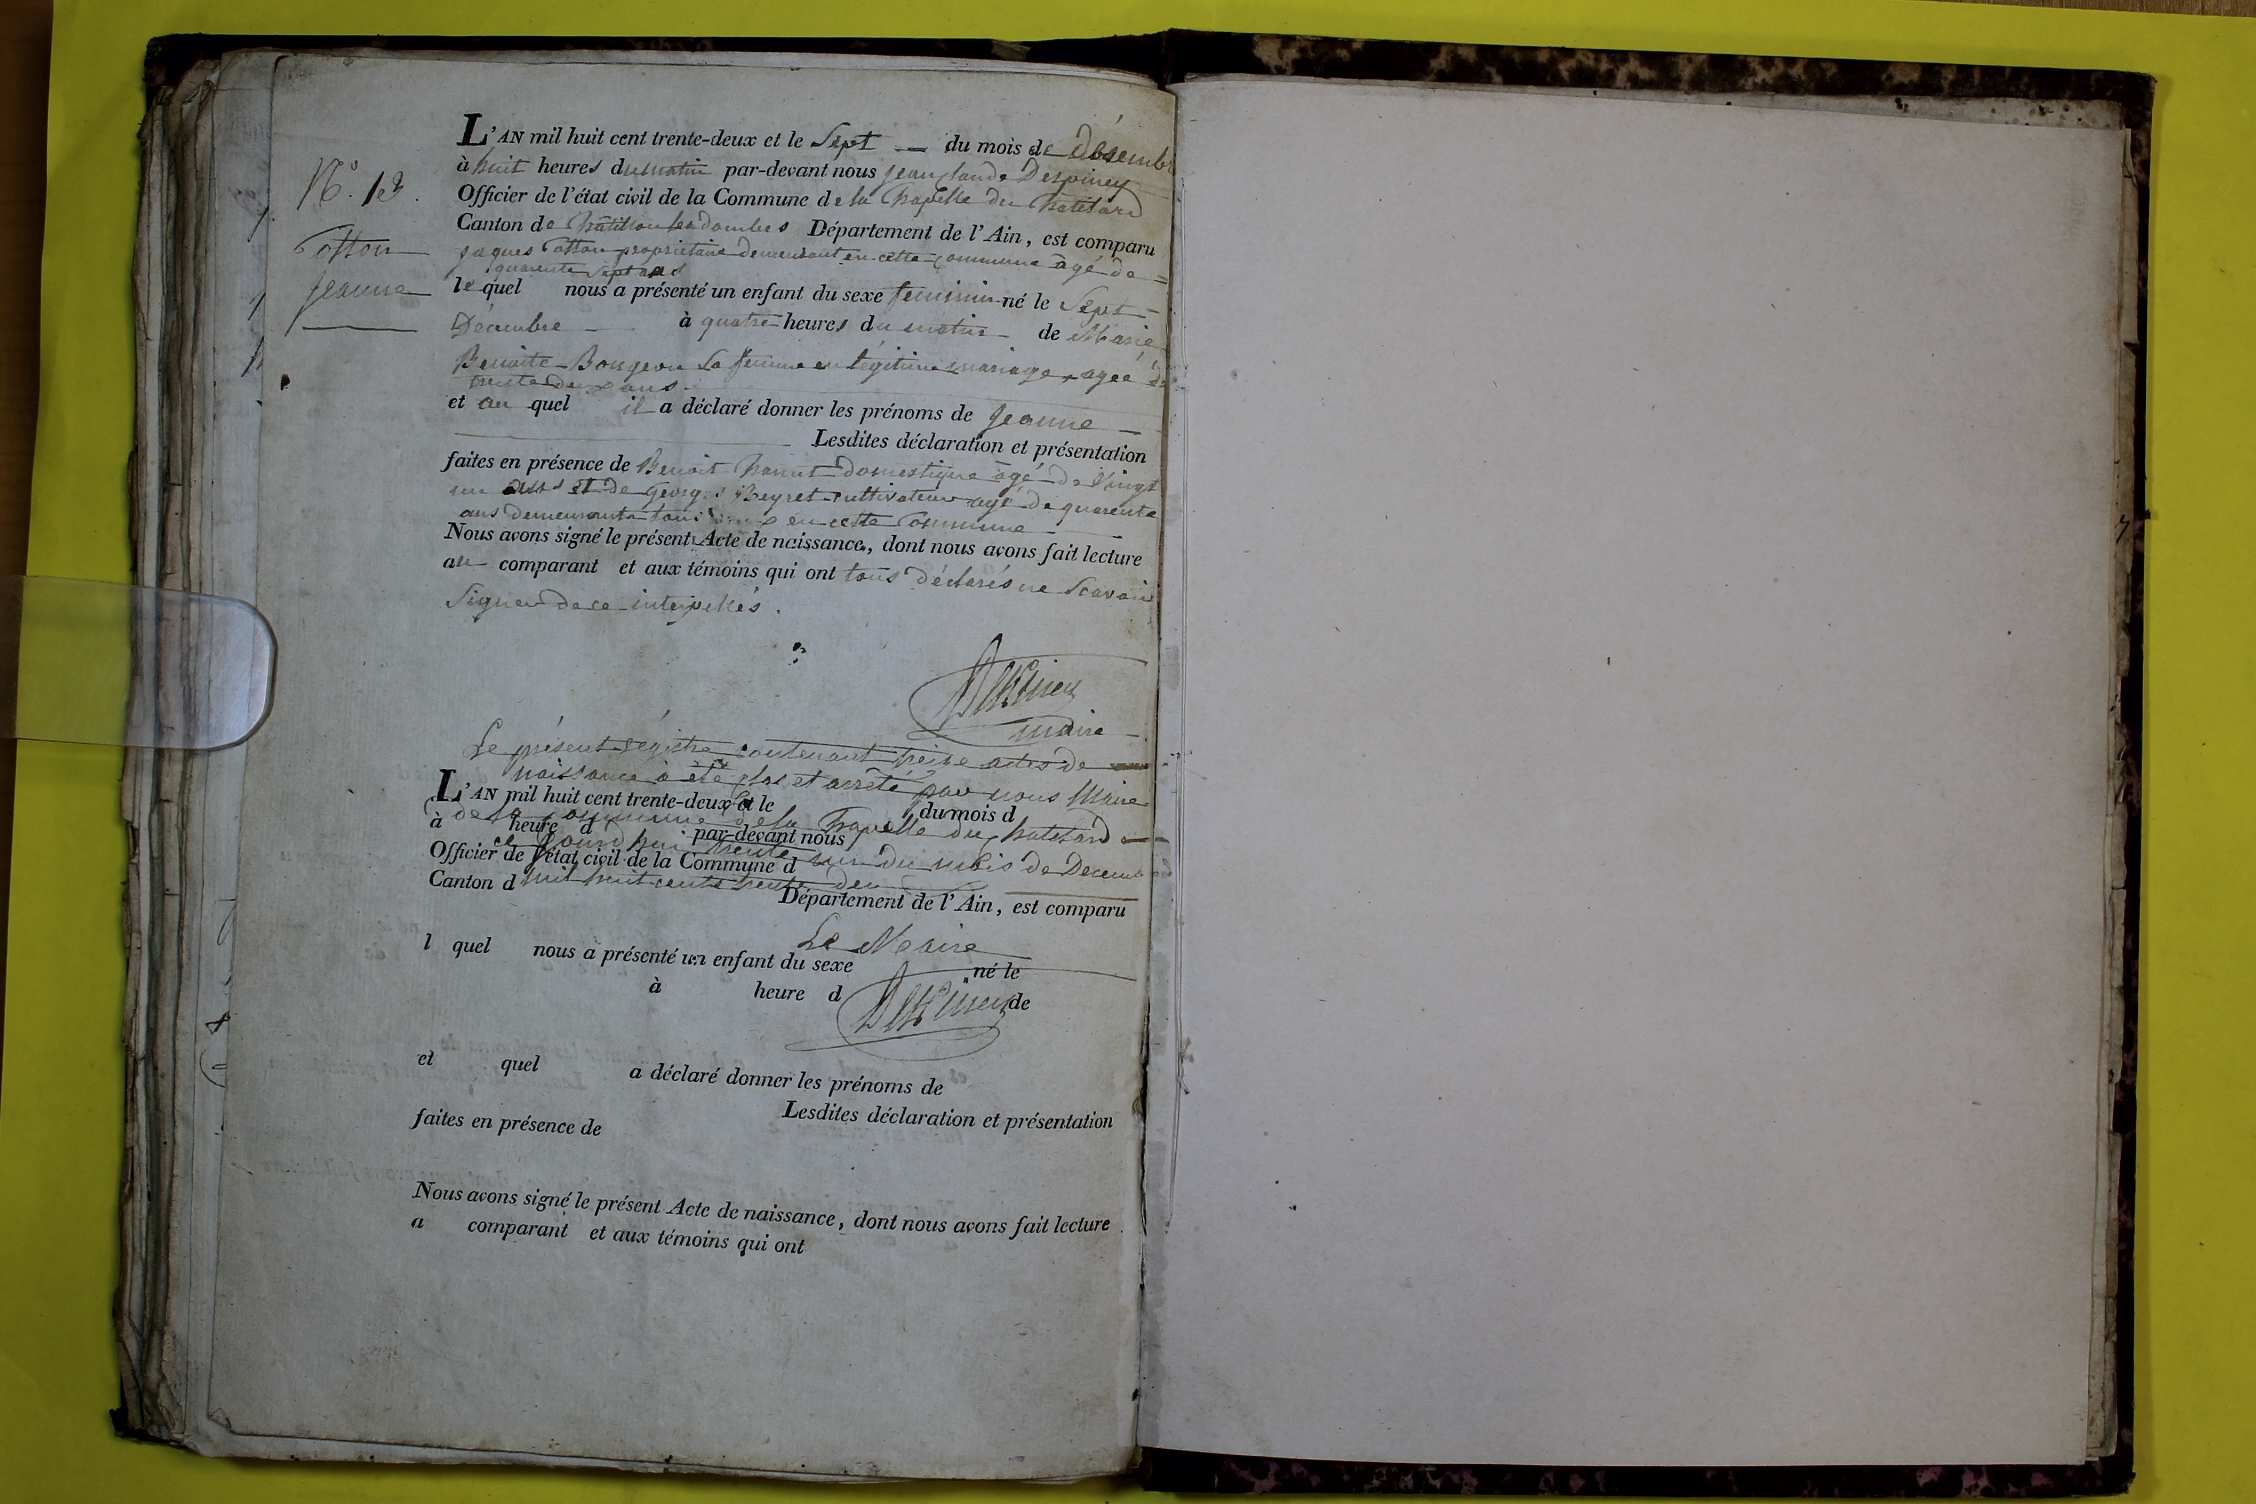 N.º 13.
Cotton
Jeanne
L'AN mil huit cent trente-deux et le Sept du mois de décembre
à huit heures du matin par-devant nous jean Claude Despiney
Officier de l'état civil de la Commune de la Chapelle du Chatelard
Canton de Châtillon les dombes Département de l'Ain, est comparu
jaques Cotton propriétaire demeurant en cette Commune âgé de
quarente Sept ans
lequel nous a présenté un enfant du sexe feminin né le Sept
Décembre à quatre heures du matin de Marie
Benoite Bougeon Sa femme en légitime mariage, agéé de
trente deux ans
et au quel il a déclaré donner les prénoms de Jeanne
Lesdites déclaration et présentation
faites en présence de Benoit domestique âgé de Vingt
un ans et de Georges Beyret cultivateur agé de quarente
ans demeurants tous en cette Commune
Nous avons signé le présent Acte de naissance, dont nous avons fait lecture
au comparant et aux témoins qui ont tous déclarés ne Scavoir
Signer de ce interpellés.
Despiney
maire
Le présent régistre contenant treize actes de
naissance à été clos et arrêté par nous Maire
L'AN mil huit cent trente-deux et le du mois d
de la Commune de la Chapelle du Chatelard
à heure d par-devant nous
ce jourd'hui trente un du mois de Decembre
Officier de l'état civil de la Commune d
mil huit cents trente deux
Canton d Département de l'Ain, est comparu
Le Maire
l quel nous a présenté un enfant du sexe né le
à heure d de
Despiney
et quel a déclaré donner les prénoms de
Lesdites déclaration et présentation
faites en présence de
Nous avons signé le présent Acte de naissance, dont nous avons fait lecture
a comparant et aux témoins qui ont